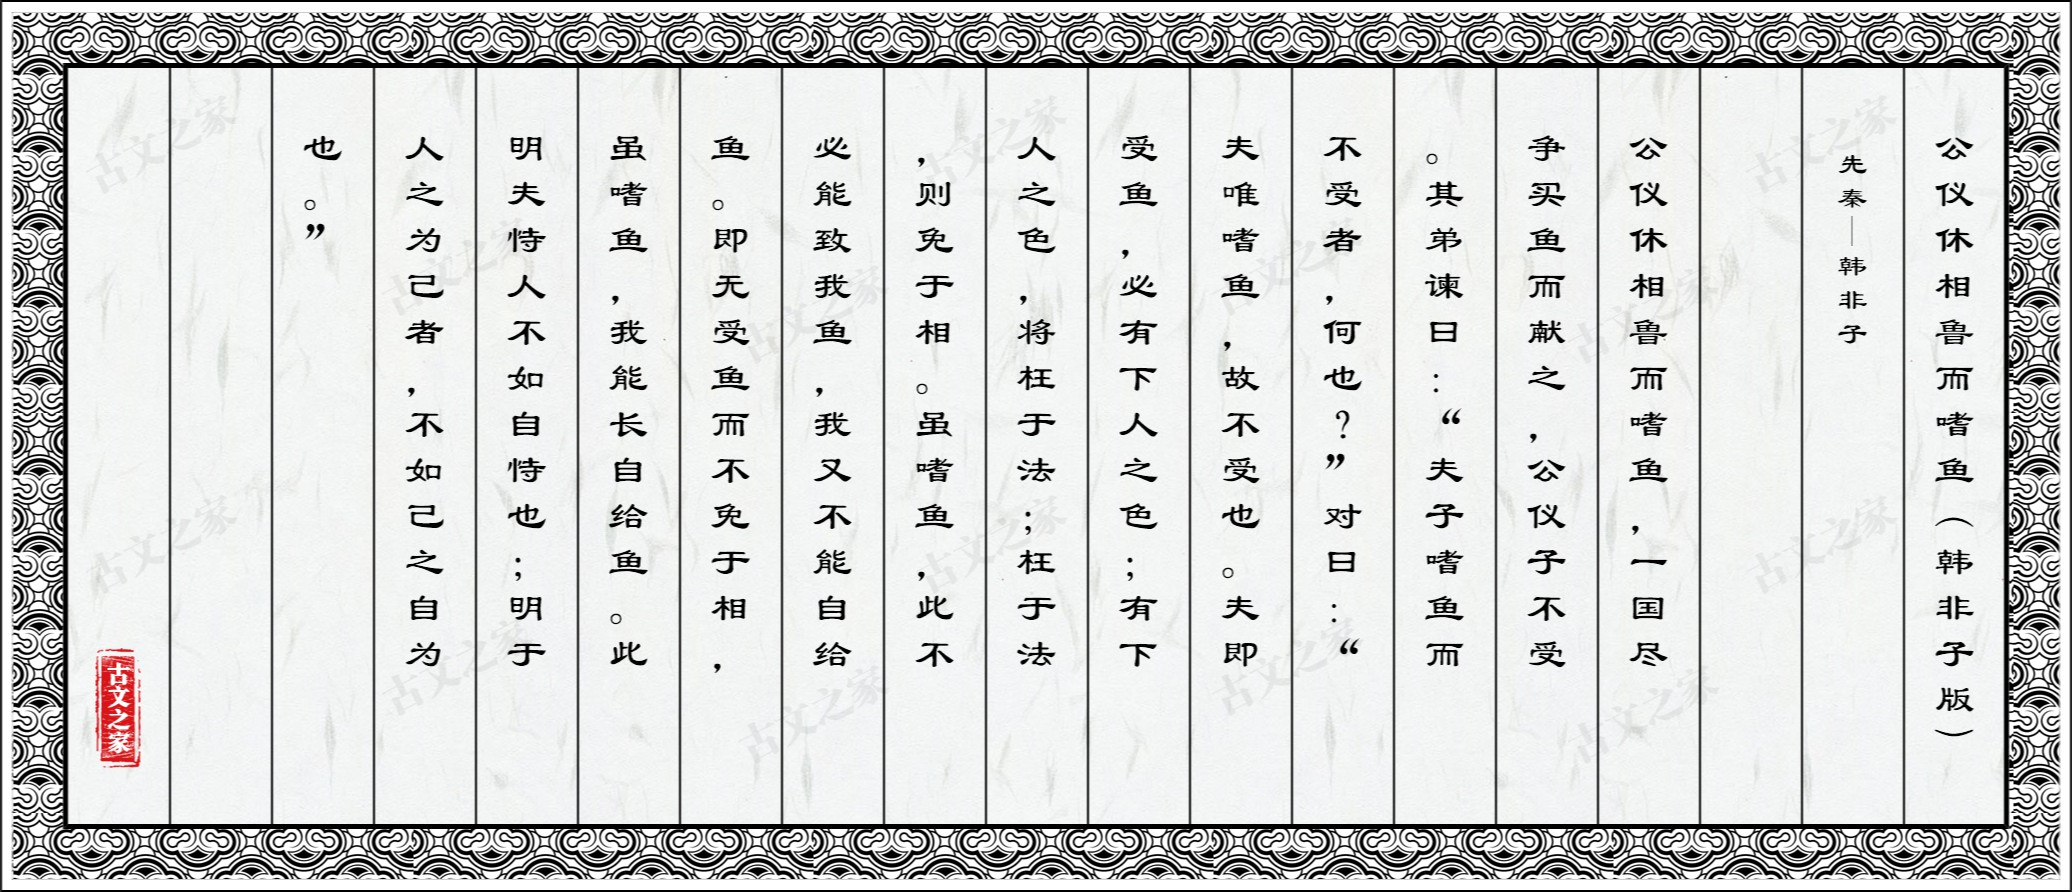 公仪休相鲁而嗜鱼（韩非子版）
先秦—韩非子
公仪休相鲁而嗜鱼，一国尽
争买鱼而献之，公仪子不受
。其弟谏曰：“夫子嗜鱼而
不受者，何也？”对曰：“
夫唯嗜鱼，故不受也。夫即
受鱼，必有下人之色；有下
人之色，将枉于法；枉于法
，则免于相。虽嗜鱼，此不
必能致我鱼，我又不能自给
鱼。即无受鱼而不免于相，
虽嗜鱼，我能长自给鱼。此
明夫恃人不如自恃也；明于
人之为己者，不如己之自为
也。”
古文之家